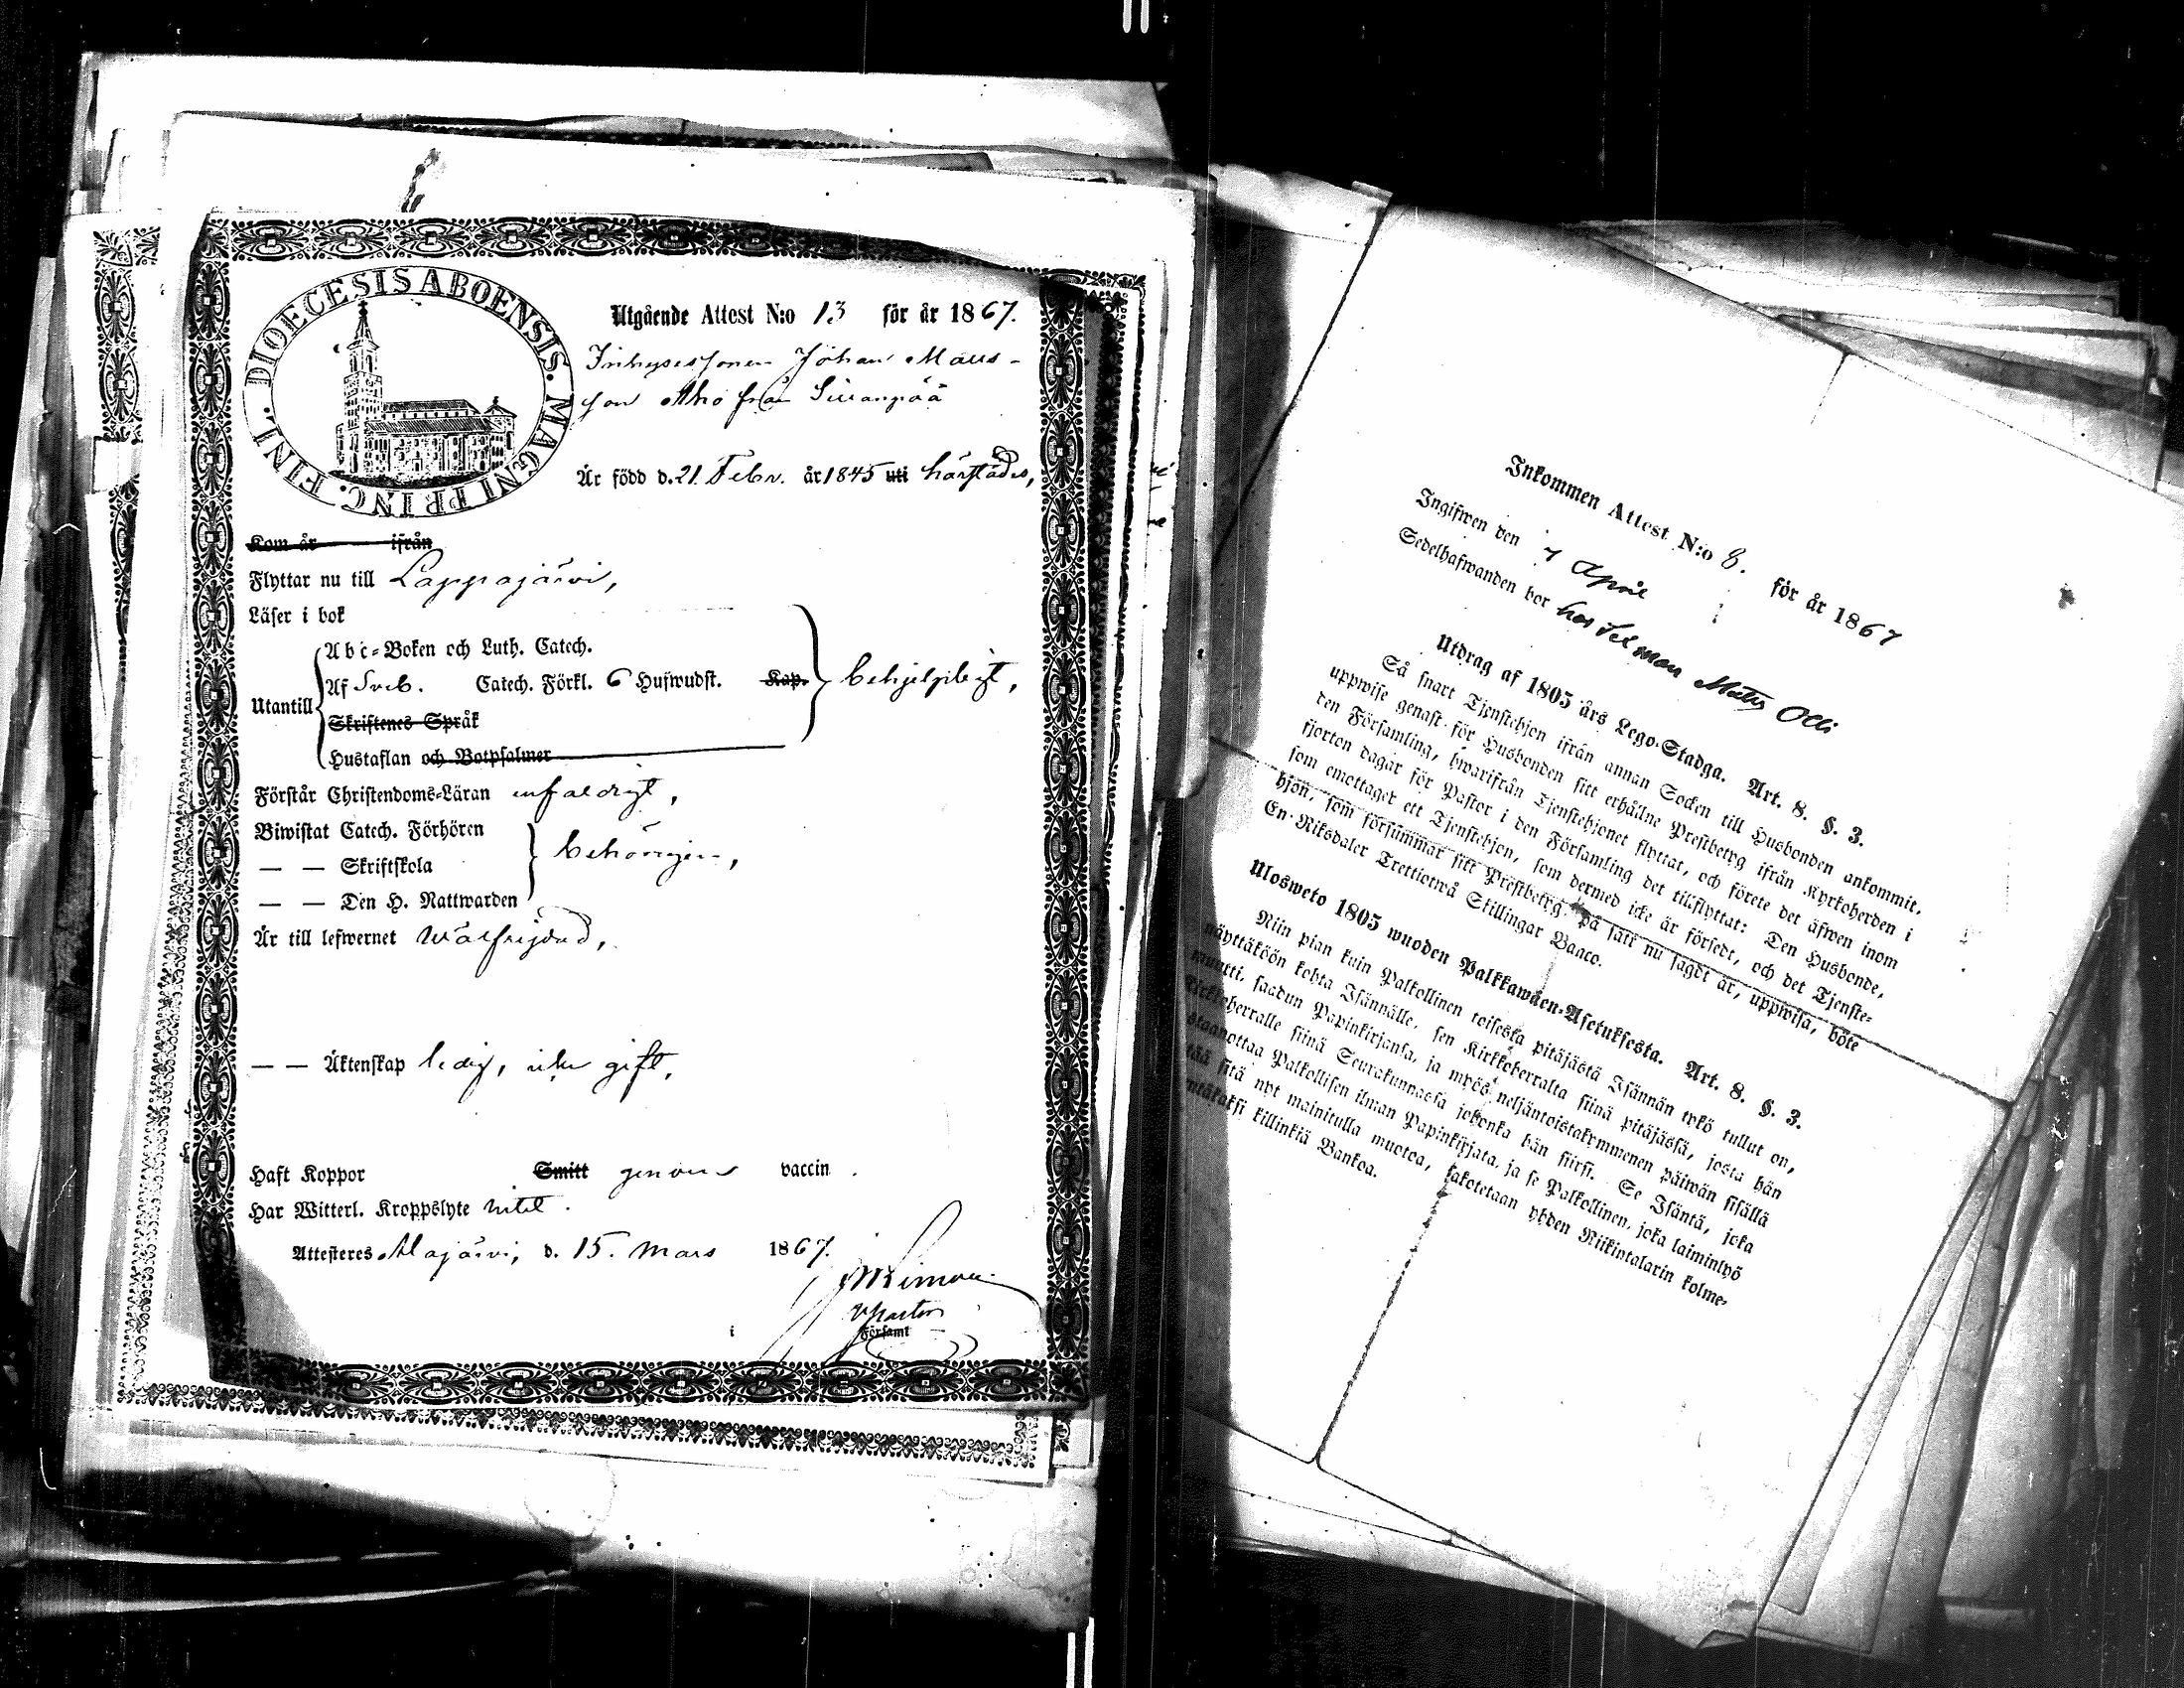 DIOECESIS ABOENSIS. MAGNI PRINC. FINL.
Utgående Attest N:o 13 för år 1867.
Inhysessonen Johan Matts-
son Aho från
Är född d. 21. Febr. år 1845 uti härstädes,
Kom år ifrån
Flyttar nu till Lappajärvi,
Läser i bok
Abc-Boken och Luth. Catech.
Utantill Af Sveb. Catech. Förkl. 6 Hufwudst. Kap. behjelpligt,
Skriftenes Språk
Hustaflan och Botpsalmer
Förstår Christendoms-Läran enfaldigt,
Biwistat Catech. Förhören
— — Skriftskola behörigen,
— — Den H. Nattwarden
Är till lefwernet wälfrejdad,
— — Äktenskap ledig, icke gift,
Haft Koppor Smitt genom vaccin.
Har Witterl. Kroppslyte intet.
Attesteres Alajärvi, d. 15. Mars 1867.
v pastor
i Församl
Inkommen Attest N:o 8. för år 1867
Ingifwen den 7 April
Sedelhafwanden bor hos Matts Olli
Utdrag af 1805 års Lego-Stadga. Art. 8. §. 3.
Så snart Tjenstehjon ifrån annan Socken till Husbonden ankommit,
uppwise genast för Husbonden sitt erhållne Prestbetyg ifrån Kyrkoherden i
den Församling, hwarifrån Tjenstehjonet flyttat, och förete det äfwen inom
fjorton dagar för Pastor i den Församling det tillflyttat: Den Husbonde,
som emottager ett Tjenstehjon, som dermed icke är försedt, och det Tjenste-
hjon, som försummar sitt Prestbetyg, på sätt nu sagdt är, uppwisa, böte
En Riksdaler Trettiotwå Skillingar Banco.
Ulosweto 1805 wuoden Palkkawäen-Asetuksesta. Art. 8. §. 3.
Niin pian kuin Palkollinen toisesta pitäjästä Isännän tykö tullut on,
näyttäköön kohta Isännälle, sen Kirkkoherralta siinä pitäjässä, josta hän
muutti, saadun Papinkirjansa, ja myös neljäntoistakymmenen päiwän sisällä
Kirkkoherralle siinä Seurakunnassa johonka hän siirsi. Se Isäntä, joka
staanottaa Palkollisen ilman Papinkirjata, ja se Palkollinen, joka laiminlyö
tää sitä nyt mainitulla muotoa, sakotetaan yhden Riikintalarin kolme-
ntäkaksi killinkiä Bankoa.